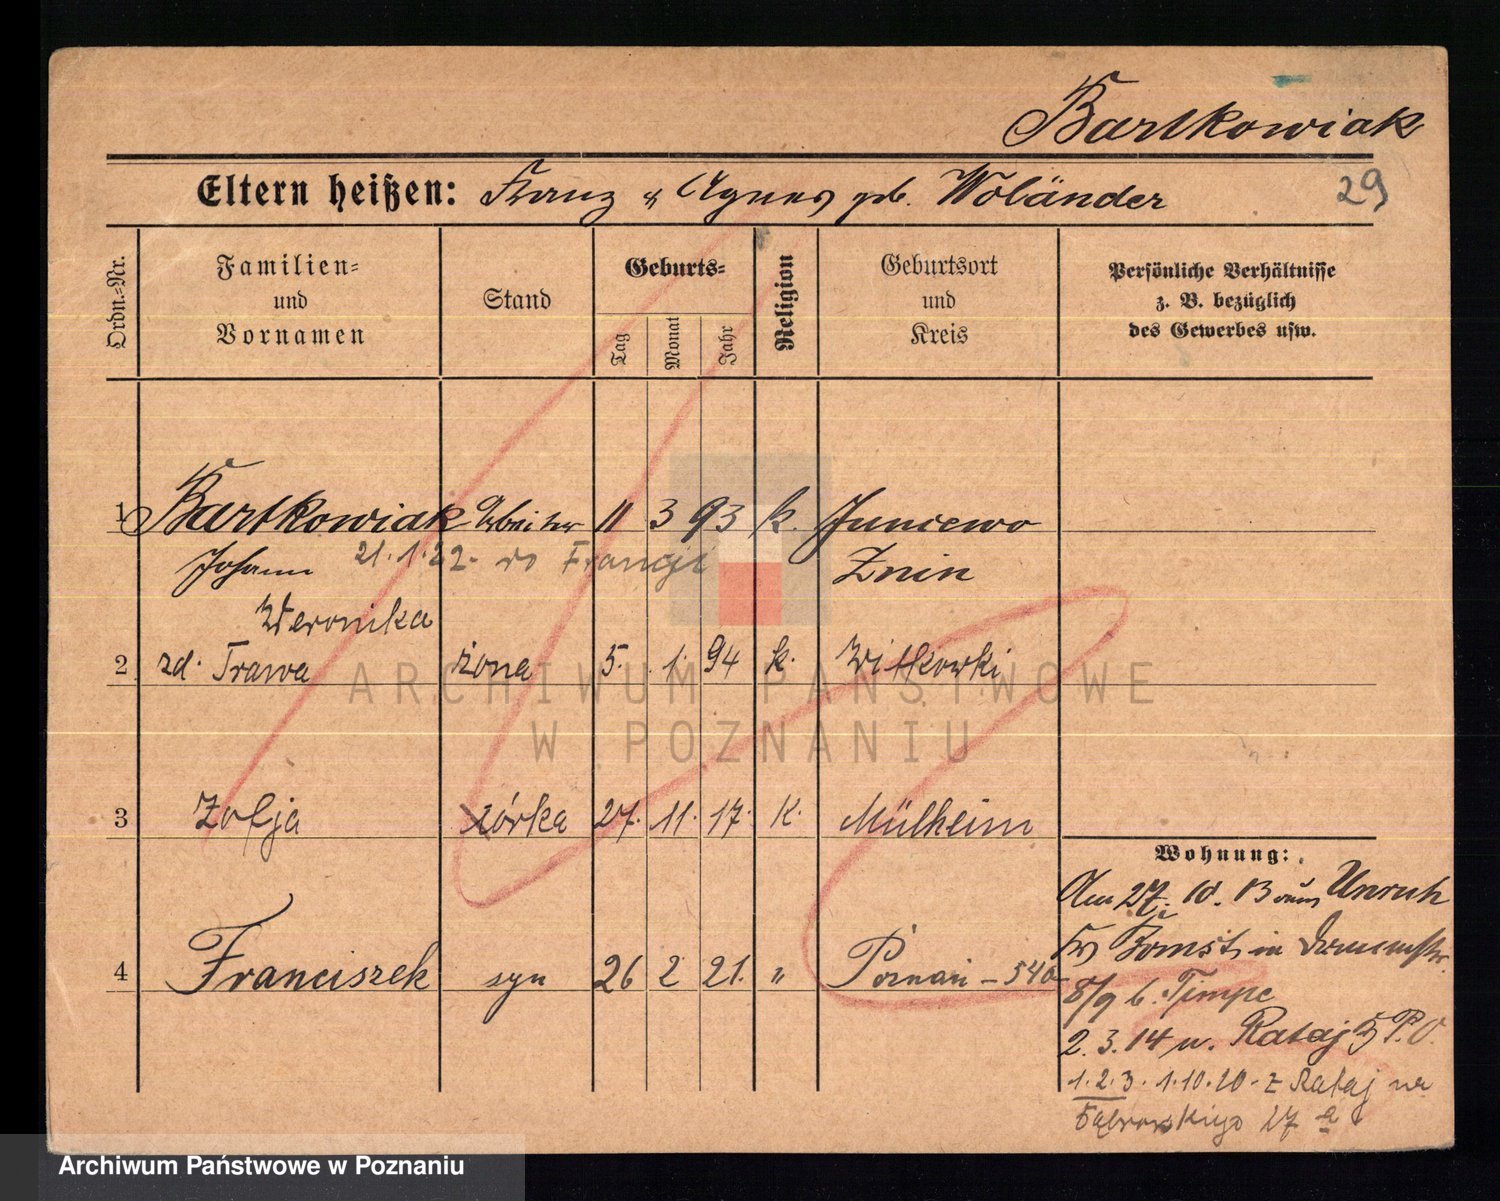 Bartkowiak
Eltern heißen: Franz u Agnes geb. Woländer
29
Ordn.-Nr.
Familien-
und
Vornamen
Stand
Geburts-
Tag
Monat
Jahr
Religion
Geburtsort
und
Kreis
Persönliche Verhältnisse
z. B. bezüglich
des Gewerbes usw.
1 Bartkowiak Arbeiter 11 3 93 k. Juncewo
Johann 21.1.22. do Francji Znin
Weronika
2 zd. Trawa żona 5. 1. 94 k. Witkowski
3 Zofja córka 27. 11. 17. K. Mülheim
4 Franciszek syn 26 2 21. " Poznań – 540
Wohnung:
Am 27. 10. 13 aus Unruh
Kr Bomst, in
8/9 b. Timpe
2. 3. 14 n. Rataj 5 P.O.
1.2.3. 1.10.20. z Rataj na
Dąbrowskiego 27 a
ARCHIWUM PAŃSTWOWE
W POZNANIU
Archiwum Państwowe w Poznaniu